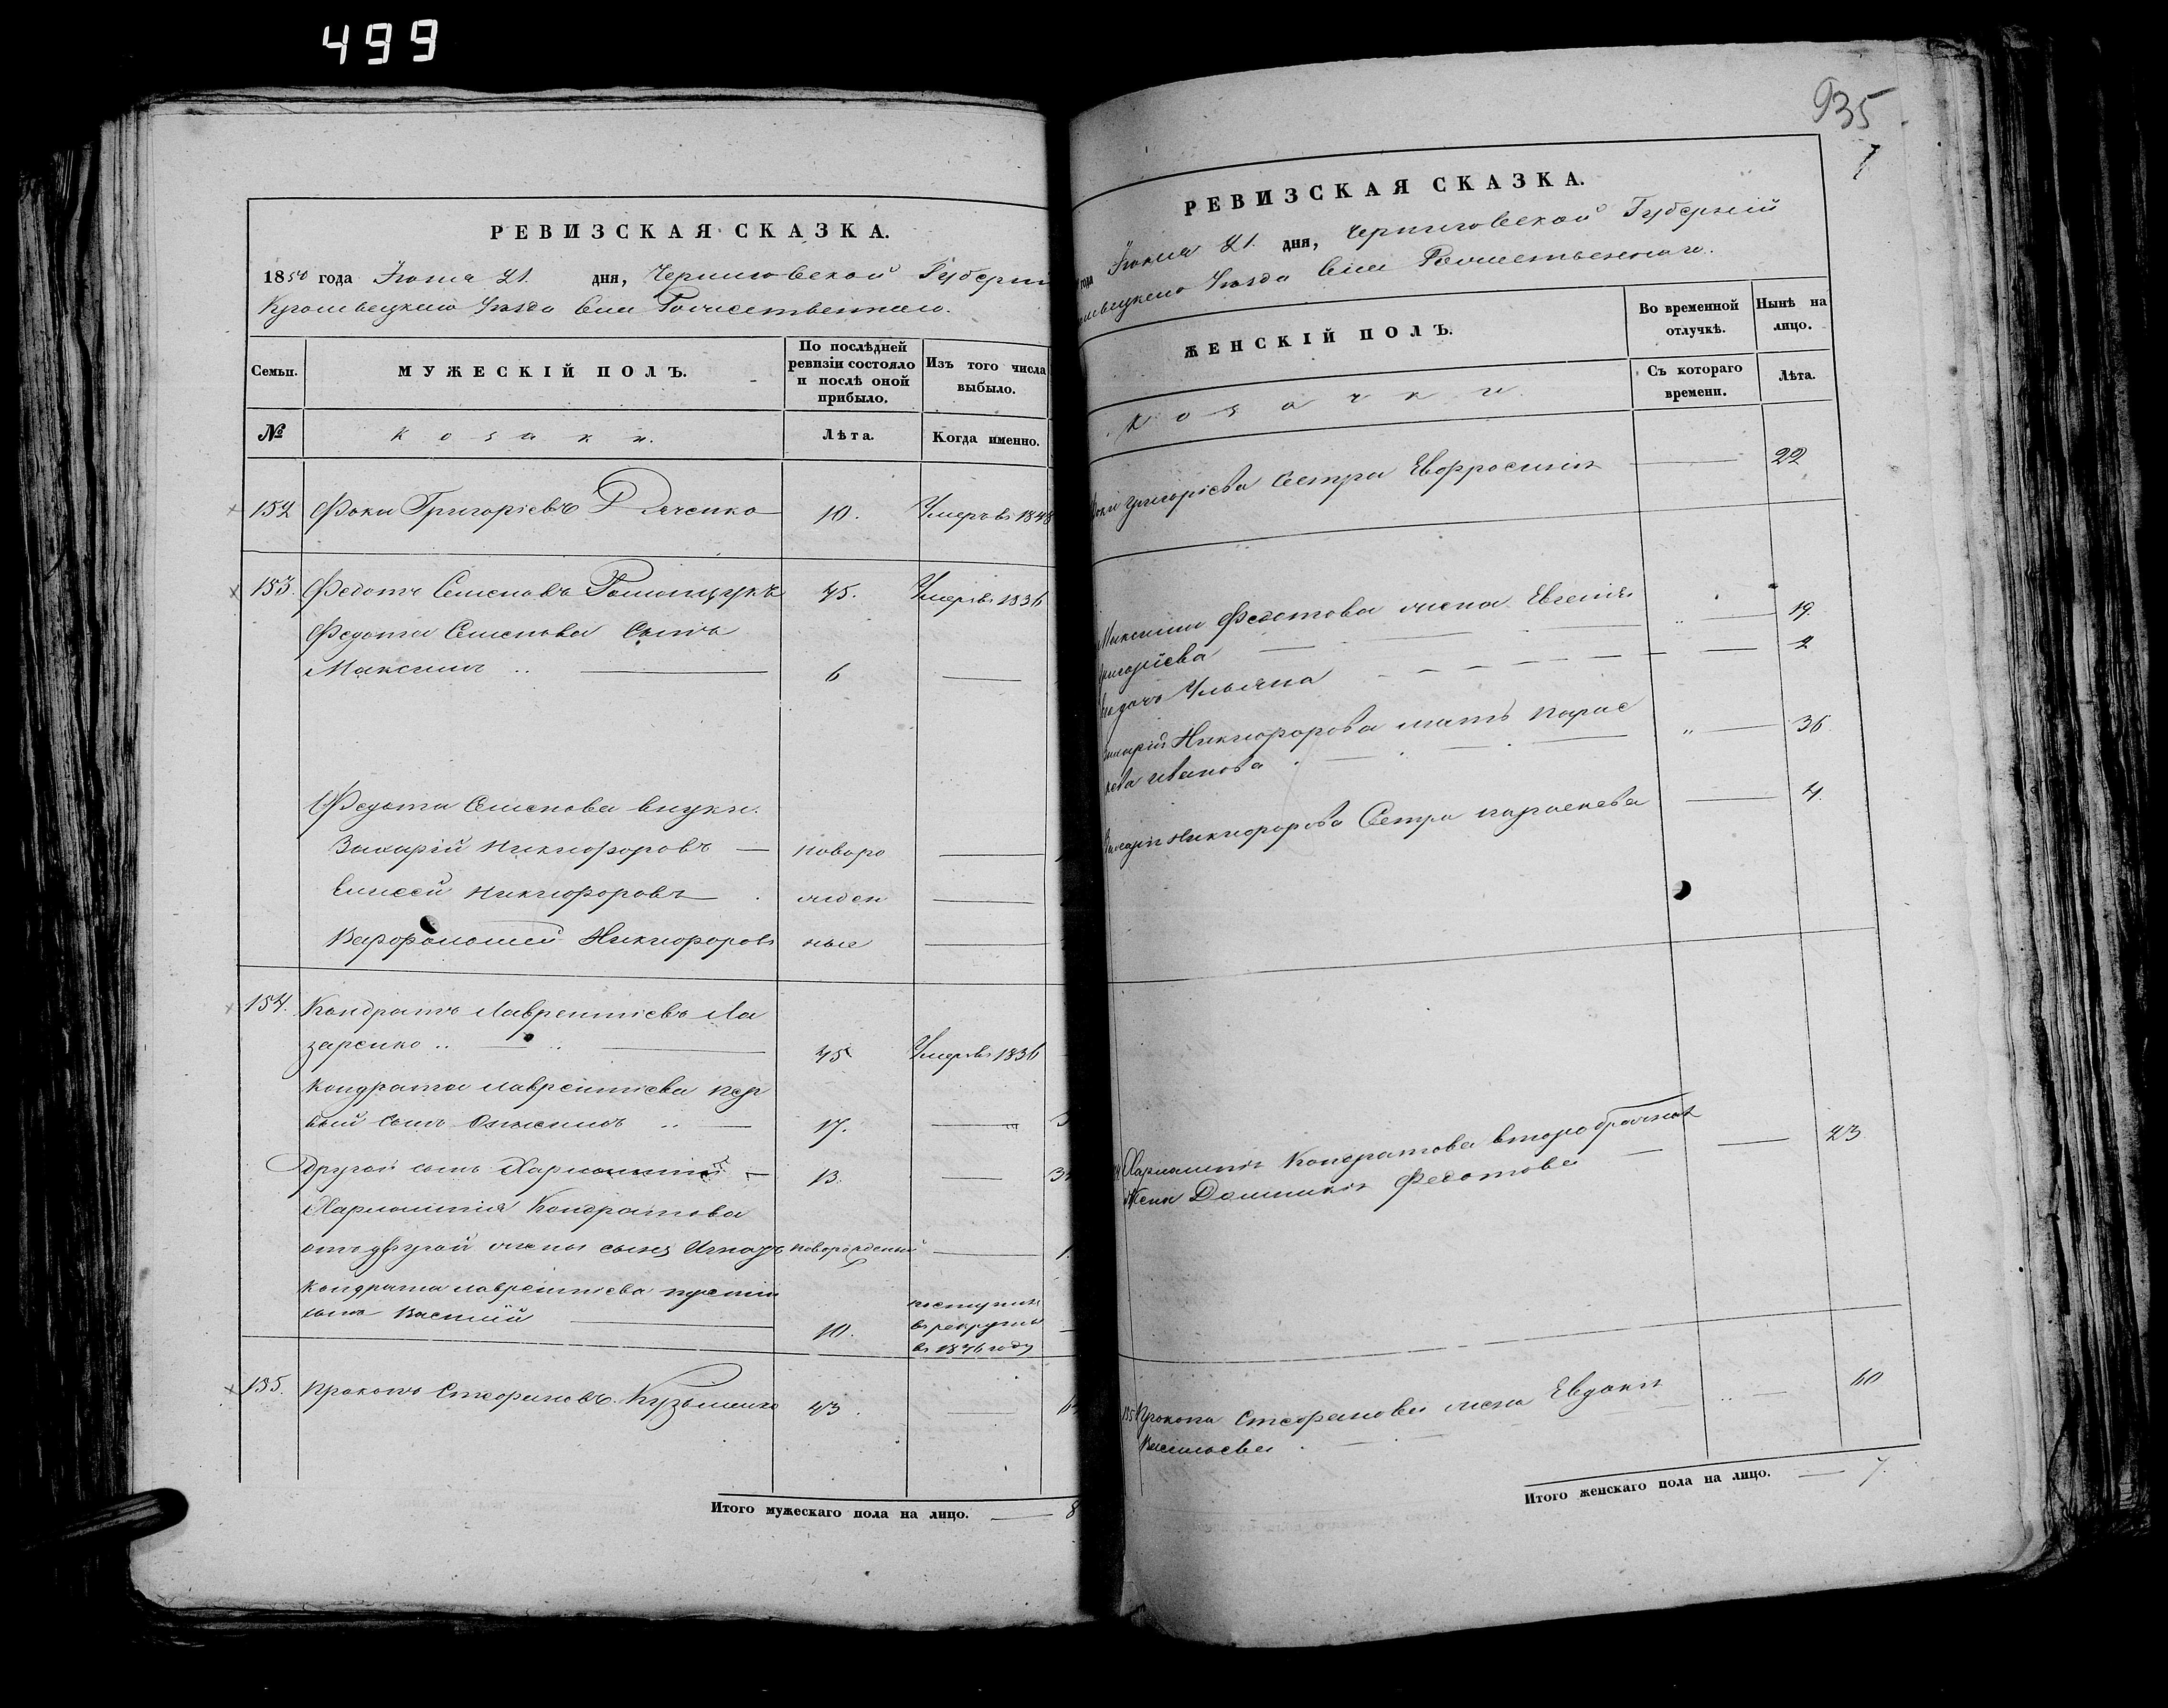 499
РЕВИЗСКАЯ СКАЗКА.
1850 года Іюня 21. дня, Черниговской Губерніи
Кролевецкаго Уѣзда Села Рожественскаго.
Семьи.
МУЖЕСКІЙ ПОЛЪ.
По послѣдней ревизіи состояло и послѣ оной прибыло.
Изъ того числа выбыло.
№
Козаки.
Лѣта.
Когда именно.
152 Фока Григоріевъ Дяченко 10. Умеръ въ 1848
153. Федотъ Семеновъ 45. Умеръ въ 1836
Федота Семенова сынъ
Максимъ .. 6
Федота Семенова внуки.
Захарій Никифоровъ новоро
Елисей Никифоровъ жден
Варфоломей Никифоровъ ные
154. Кондратъ Лаврентіевъ Ла
заренко .. 45 Умеръ въ 1836
Кондрата Лаврентіева пер
вый сынъ 17.
Другой сынъ Харлампій 13.
Харлампія Кондратова
отъ другой жены сынъ Игнатъ новорожденный
Кондрата Лаврентіева третій
сынъ Василій 10. поступилъ
въ рекруты
въ 1846 году
155. Прокопъ Стефановъ Кузьменко 43.
Итого мужескаго пола на лицо. 8
935
РЕВИЗСКАЯ СКАЗКА.
года Іюня 21. дня, Черниговской Губерніи
Уѣзда Села Рожественскаго.
ЖЕНСКІЙ ПОЛЪ.
Во временной отлучкѣ.
Нынѣ на лицо.
Козачки.
Съ котораго времени.
Лѣта.
Фоки Григоріева сестра Евфросинія 22
Максима Федотова жена Евгенія
Григоріева 19.
дочь Ульяна 2
Захарія Никифорова мать Парас
кева Иванова 36
Захарія Никифорова сестра Параскева 4.
Харлампія Кондратова второбрачная
жена Домникія Федотова 23
155 Прокопа Стефанова жена Евдокія 60
Васильева
Итого женскаго пола на лицо. 7.